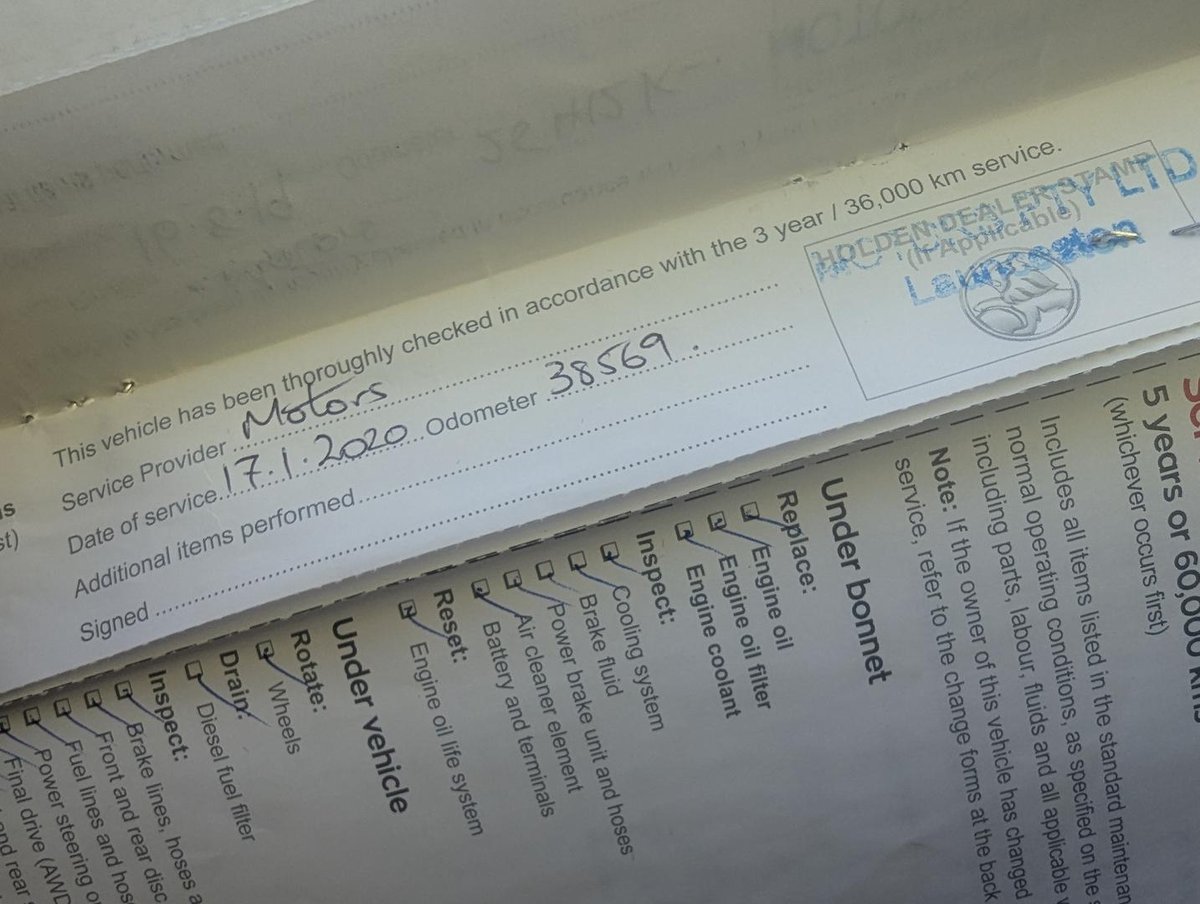 This vehicle has been thoroughly checked in accordance with the 3 year / 36,000 km service.
Service Provider Motors
Date of service 17.1.2020 Odometer 38569.
Additional items performed
Signed
HOLDEN DEALER STAMP
(If Applicable)
PTY LTD
Launceston
5 years or 60,000 kms
(whichever occurs first)
Includes all items listed in the standard
normal operating conditions, as specified on the
including parts, labour, fluids and all applicable
Note: If the owner of this vehicle has changed
service, refer to the change forms at the back
Under bonnet
Replace:
Engine oil
Engine oil filter
Engine coolant
Inspect:
Cooling system
Brake fluid
Power brake unit and hoses
Air cleaner element
Battery and terminals
Reset:
Engine oil life system
Under vehicle
Rotate:
Wheels
Drain:
Diesel fuel filter
Inspect:
Brake lines, hoses
Front and rear disc
Fuel lines and
Power steering
Final drive (AWD
and rear